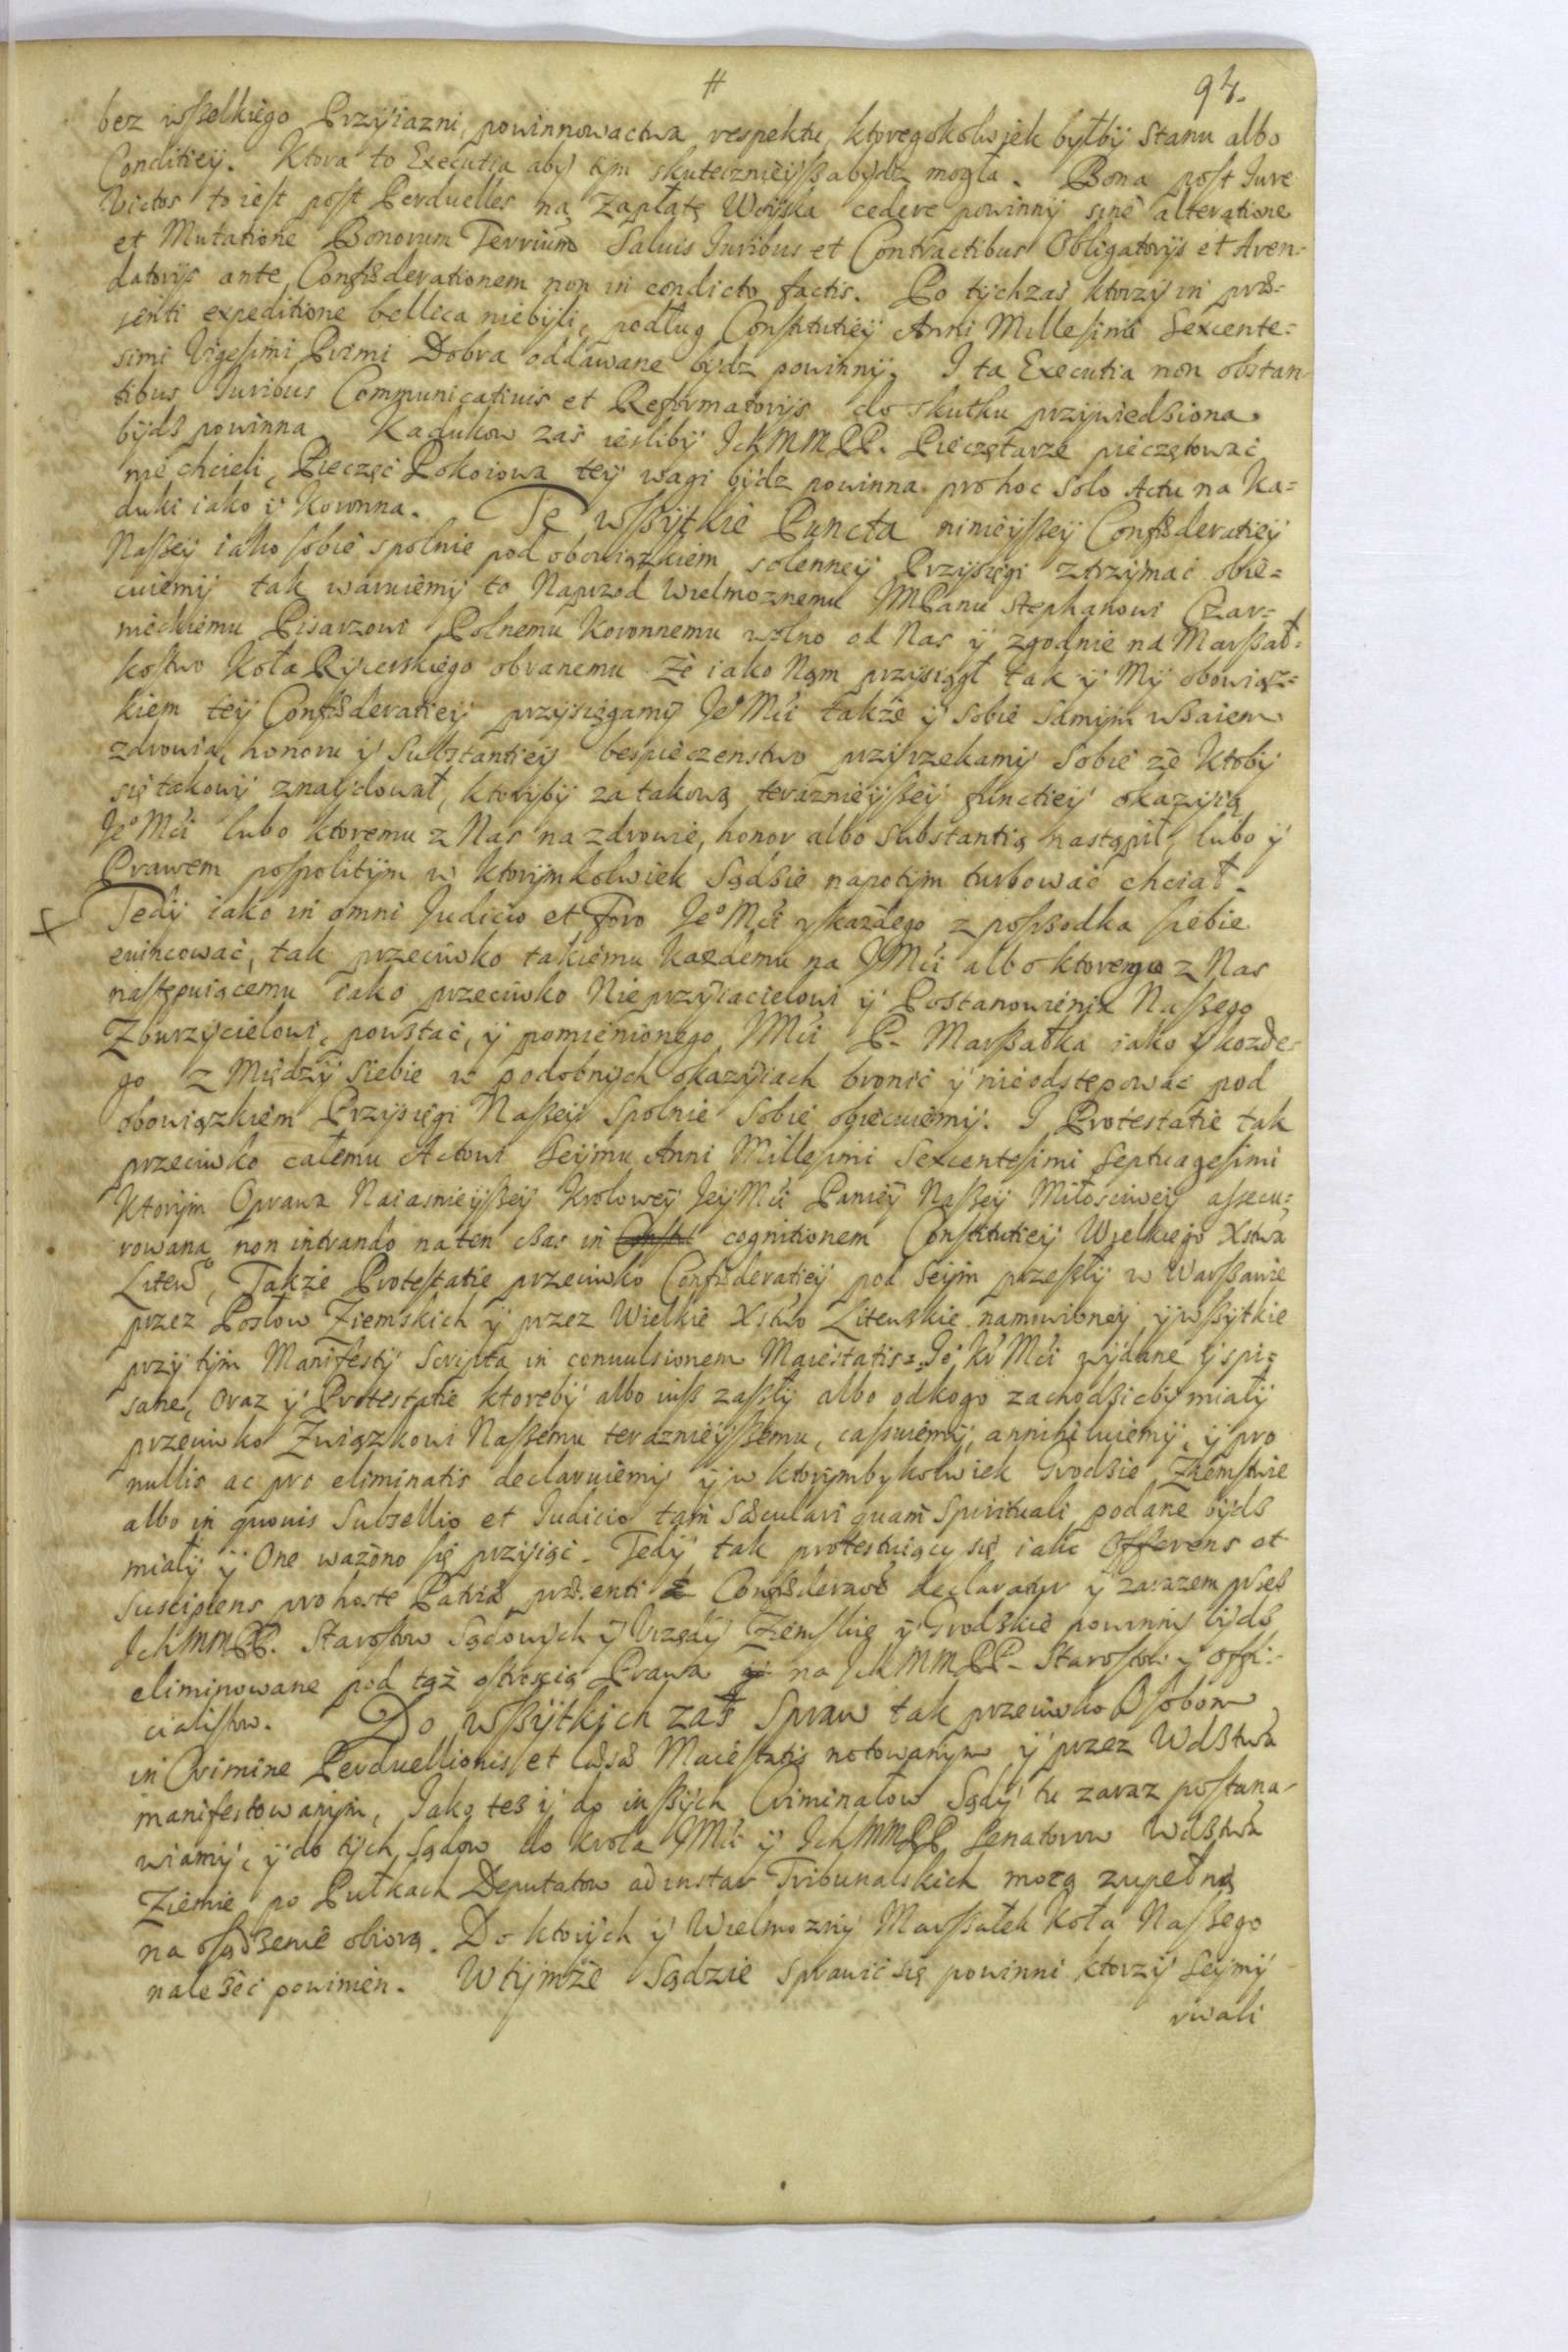 # 94.
bez wßelkiego Przyiazni, powinnowactwa respektu, ktoregokolwiek byłby Stanu albo
Conditiey. Ktora to Executia aby tym skutecznieyßa bydz mogła. Bona post Jure
Victos to iest post Perduelles na Zapłatę Woyska cedere powinny sine alteratione
et Mutatione Bonorum Terrium Saluis Juribus et Contractibus Obligatorijs et Aren-
datorijs ante Confæderationem non in condicto factis. Po tychzas ktorzy in præ-
senti expeditione bellica niebyli, podług Constitutiey Anni Millesimi Sexcente=
simi Vigesimi Primi Dobra oddawane bydz powinny. I ta Executia non obstan-
tibus Juribus Communicatiuis et Reformatorijs do skutku przywiedziona
bydz powinna. Kadukow zas iesliby IchMMPP. Pieczętarze pieczętować
nie chcieli, Pieczęć Pokoiowa tey wagi bydz powinna pro hoc solo Actu na Ka=
duki iako y Koronna. Te wßytkie Puncta ninieyßey Confæderatiey
Naßey iako sobie spolnie pod obowiązkiem solenney Przysięgi ztrzymać obie=
cuiemy tak waruiemy to Naprzod Wielmoznemu JMPanu Stephanowi Czar=
nieckiemu Pisarzowi Polnemu Koronnemu wolno od Nas y zgodnie na Marßał=
kostwo Koła Rycerskiego obranemu Ze iako Nam przysiągł tak y My obowiąz=
kiem tey Confæderatiey przysięgamy Jeº Mći także y sobie samym wßaiem
zdrowia, honoru y Substantiey bespieczenstwo przyrzekamy Sobie ze Ktoby
się takowy znaydował, ktoryby za takową teraznieyßey functiey okazyią
Jeº Mći lubo ktoremu z Nas na zdrowie, honor albo substantią nastąpił, lubo y
Prawem pospolitym w ktorymkolwiek Sądzie napotym turbować chciał.
Tedy iako in omni Judicio et Foro Jeº Mći y kazdego z posßodka siebie
euincować, tak przeciwko takiemu kazdemu na JMći albo ktorego z Nas
następuiącemu iako przeciwko Nieprzyiacielowi y Postanowienia Naßego
Zburzycielowi, powstać, y pomienionego JMći P. Marßałka iako y kozde-
go z Między siebie w podobnych okazyiach bronić y nieodstępować pod
obowiązkiem Przysięgi Naßey spolnie sobie obiecuiemy. I Protestatie tak
przeciwko całemu Actowi Seymu Anni Millesimi Sexcentesimi Septuagesimi
Ktorym Oprawa Naiasnieyßey Krolowey JeyMći Paniey Naßey Miłościwey assecu=
rowana non intrando na ten czas in cognitionem Constitutiey Wielkiego Xstwa
Litewº, Także Protestatie przeciwko Confæderatiey pod Seym przeszły w Warßawie
przez Posłow Ziemskich y przez Wielkie Xstwo Litewskie namowioney, y wßytkie
przy tym Manifesty Scripta in conuulsionem Maiestatis Jeº Kr Mći wydane y spi=
sane, Oraz y Protestatie ktoreby albo iuß zaßły albo odkogo zachodzicby miały
przeciwko Związkowi Naßemu teraznieyßemu, cassuiemy, annihiluiemy, y pro
nullis ac pro eliminatis declaruiemy y w ktorymbykolwiek Grodzie, Ziemstwie
albo in quouis Subsellio et Judicio tam Sæculari quam Spirituali podane bydz
miały y One ważono się przyiąć. Tedy tak protestuiący się iako Offerens et
Suscipiens pro hoste Patriæ præsenti Confæderatiæ declaratur y zarazem przez
IchMMPP. Starostow Sądowych y Vrzędy Ziemskie y Grodzkie powinny bydz
eliminowane pod tąż ostroscią Prawa na IchMMPP. Starostow y Offi=
cialistow. Do wßytkich zaś Spraw tak przeciwko Osobom
in Crimine Perduellionis et læsæ Maiestatis notowanym y przez Wdztwa
manifestowanym, Jako też i do inßych Criminałow Sądy tu zaraz postana-
wiamy, y do tych Sądow do Krola JMći y IchMMPP Senatorow Wdztwa
Ziemie po Pułkach Deputatow ad instar Tribunalskich mocą zupełną
na osądzenie obiorą. Do ktorych y Wielmozny Marßałek Koła Naßego
nalezeć powinien. W tymże Sądzie sprawić się powinni ktorzy Seymy
rwali